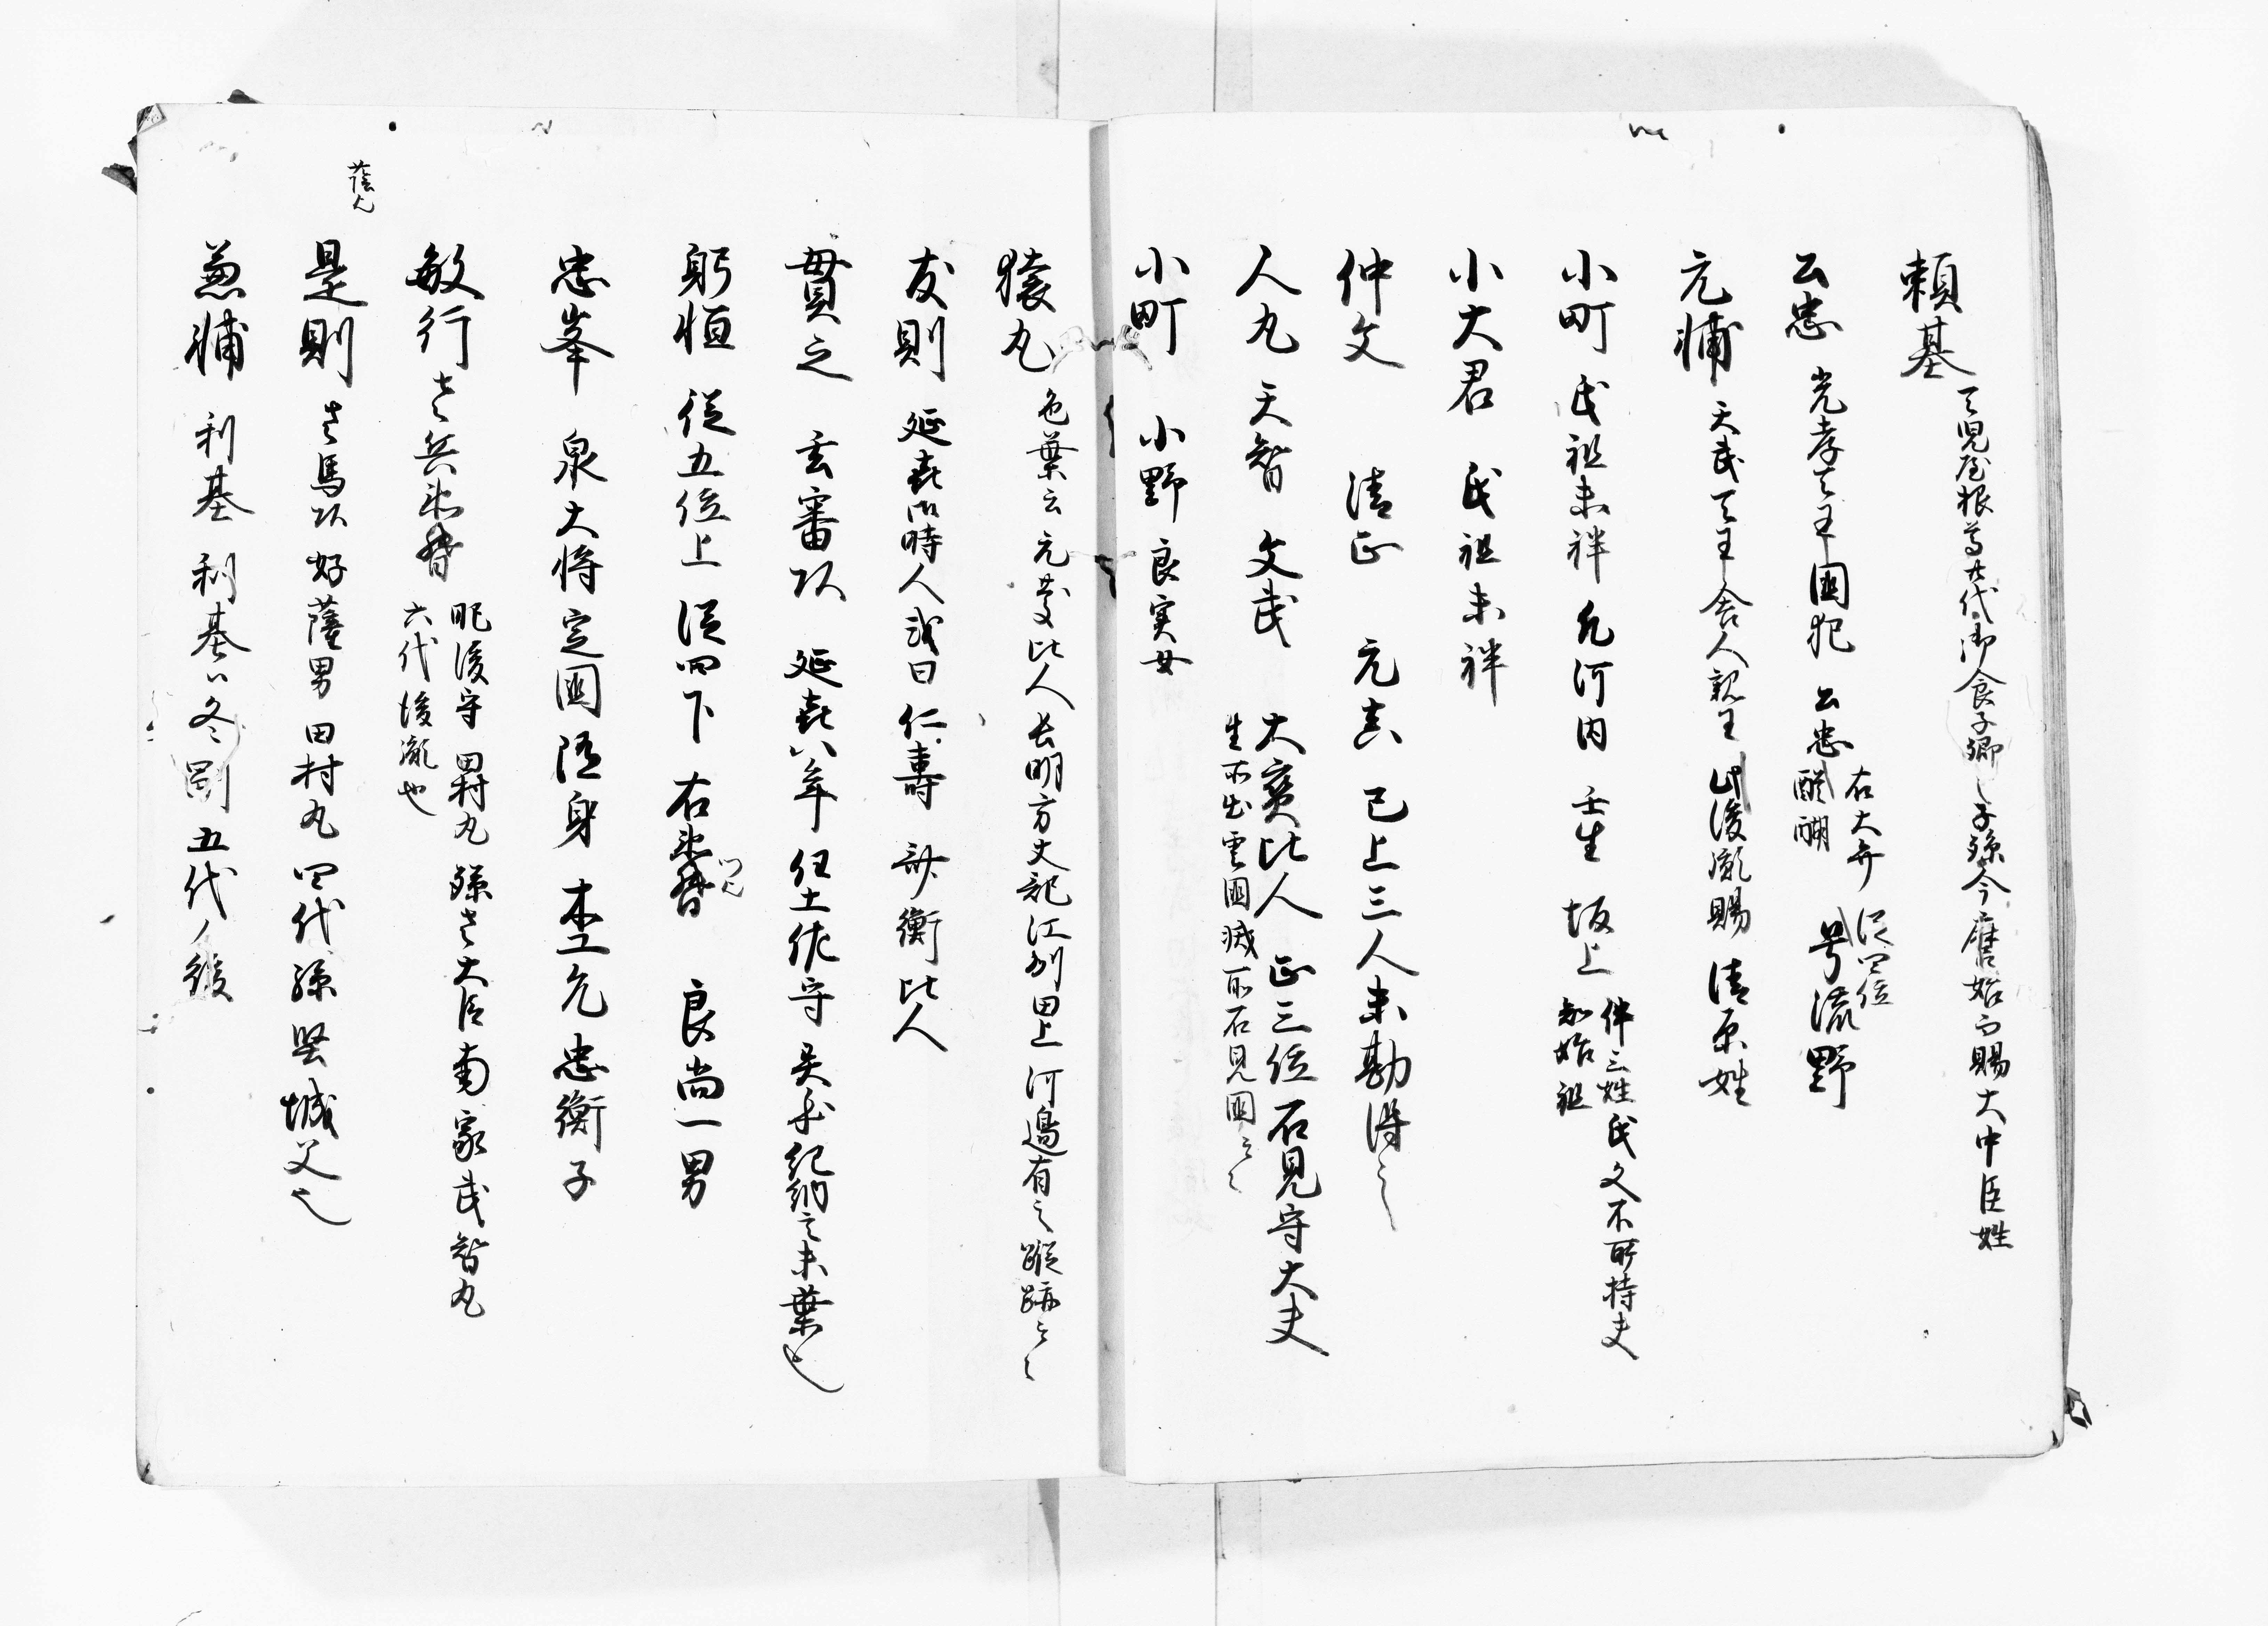 頼基 天児屋根尊廿代御食子卿之子孫今麿始而賜大中臣姓
公忠 光孝天王 国紀 公忠 醍醐 右大弁 従四位 号滋野
元輔 天武天王 舎人親王 此後胤賜 清原姓
小町 氏祖未祥 凡河内 壬生 坂上 件三姓氏文不所持夫
知始祖
小大君 氏祖未祥
仲文 清正 元真 已上三人未勘得之
人丸 天智 文武 大寶比人 正三位石見守大夫
生所出雲国滅所石見国云々
小町 小野良実女
猿丸 色葉云元慶比人 長明方丈記江州田上河邉有之蹤跡云々
友則 延喜御時人 或曰 仁壽 斉衡比人
貫之 玄審頭 延喜八年任土佐守 吴本紀納言末葉也
躬恒 従五位上 従四下 右 良尚一男
忠峯 泉大将定国随身 木工允忠衡子
敏行 左兵衛督 肥後守 田村丸 孫左大臣南家武智丸
六代後胤也
蔭人
是則 左馬頭 好蔭男 田村丸四代孫 坚城父也
兼輔 利基 利基ハ冬嗣五代ノ後